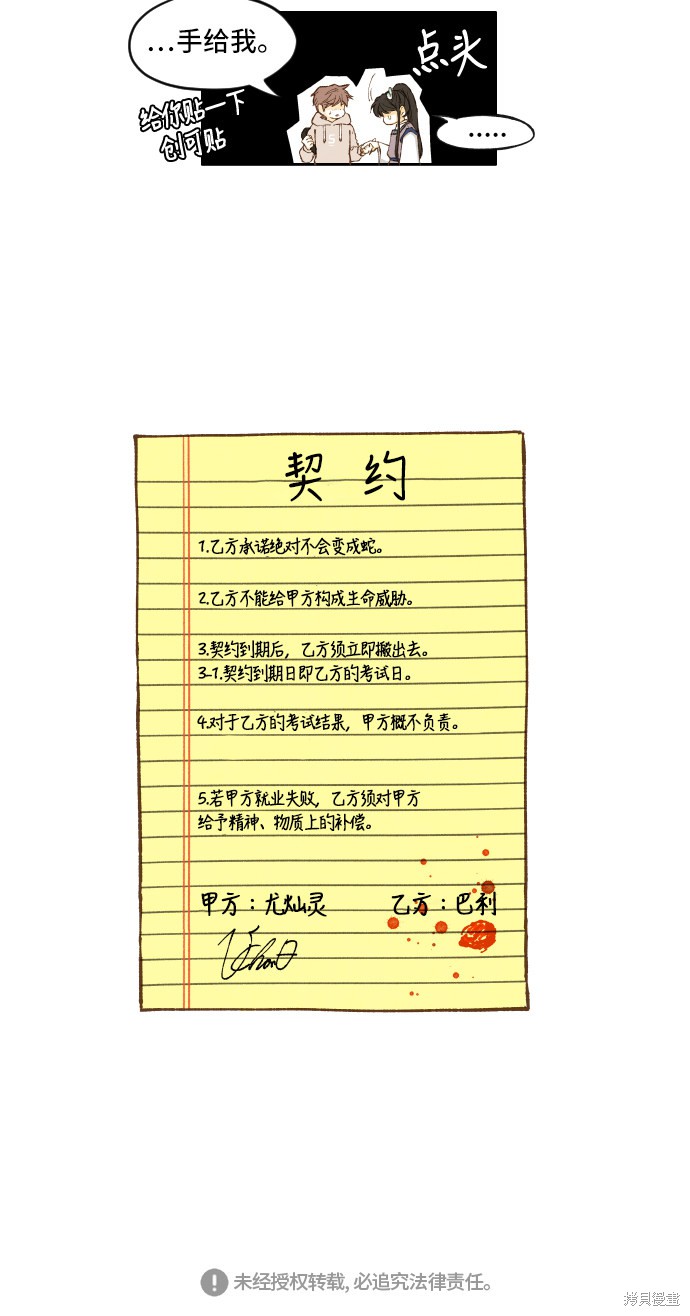 ...手给我。
点头
给你贴一下
创可贴
.....
契约
1.乙方承诺绝对不会变成蛇。
2.乙方不能给甲方构成生命威胁。
3.契约到期后，乙方须立即搬出去。
3-1.契约到期日即乙方的考试日。
4.对于乙方的考试结果，甲方概不负责。
5.若甲方就业失败，乙方须对甲方
给予精神、物质上的补偿。
甲方：尤灿灵
乙方：巴利
未经授权转载, 必追究法律责任。
拷貝漫畫